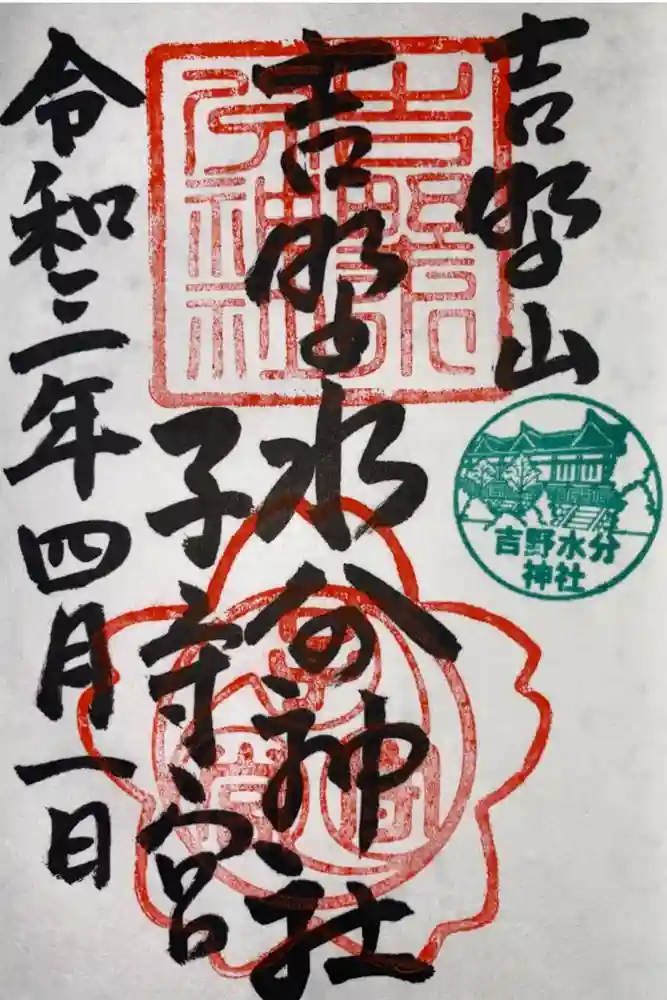 吉野山
吉野水分神社
子守宮
令和三年四月一日
吉野水分
神社
吉野水分神社
子守宮